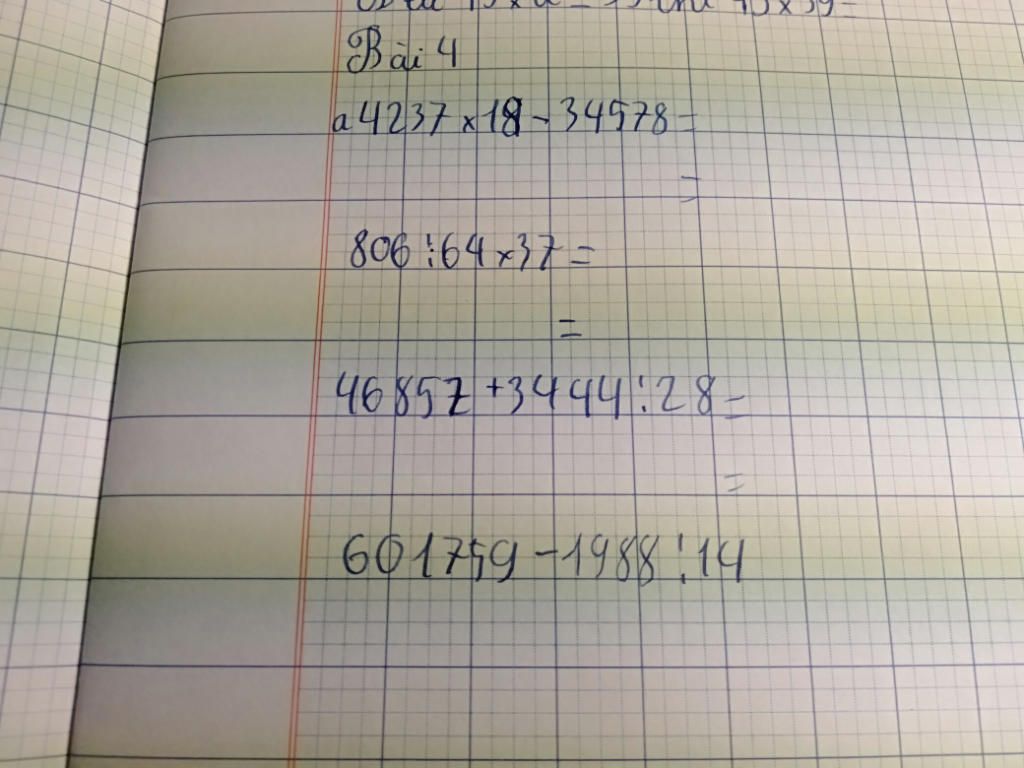 Bài 4
a 4237 × 18 - 34578 =
=
806 : 64 × 37 =
=
46857 + 3444 : 28 =
=
601759 - 1988 : 14